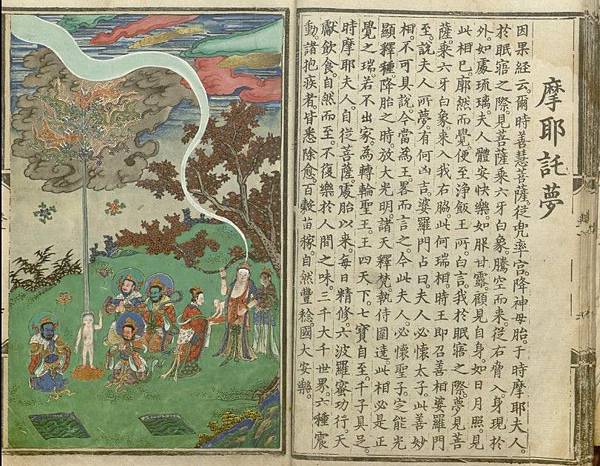 摩耶託夢
因果經云。爾時善慧菩薩從兜率宮降神母胎。于時摩耶夫人。
於眠寤之際。見菩薩乘六牙白象。騰空而來。從右脅入。身現於
外。如處琉璃。夫人體安快樂。如服甘露。顧見自身。如日月照。見
此相已。廓然而覺。便至淨飯王所。白言。我於眠寤之際。夢見菩
薩乘六牙白象。來入我右脇。此何瑞相。時王即召善相婆羅門
至。說夫人所夢。有何凶吉。婆羅門占曰。夫人必懷太子。此善妙
相。不可具說。今當為王畧而言之。今此夫人。必懷聖子。定能光
顯釋種。降胎之時。放大光明。諸天釋梵。執侍圍遶。此相必是正
覺之瑞。若不出家。為轉輪聖王。王四天下。七寶自至。千子具足。
時摩耶夫人。自從菩薩處胎以來。每日精修六波羅蜜功行。天
獻飲食。自然而至。不復樂於人間之味。三千大千世界。六種震
動。諸抱疾者。皆悉除愈。百穀苗稼。自然豐稔。國大安樂。